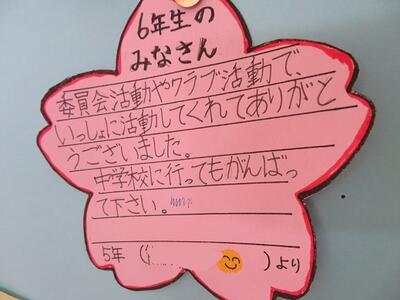 6年生の
みなさん
委員会活動やクラブ活動で、
いっしょに活動してくれてありがと
うございました。
中学校に行ってもがんばっ
て下さい。
5年（ ）より